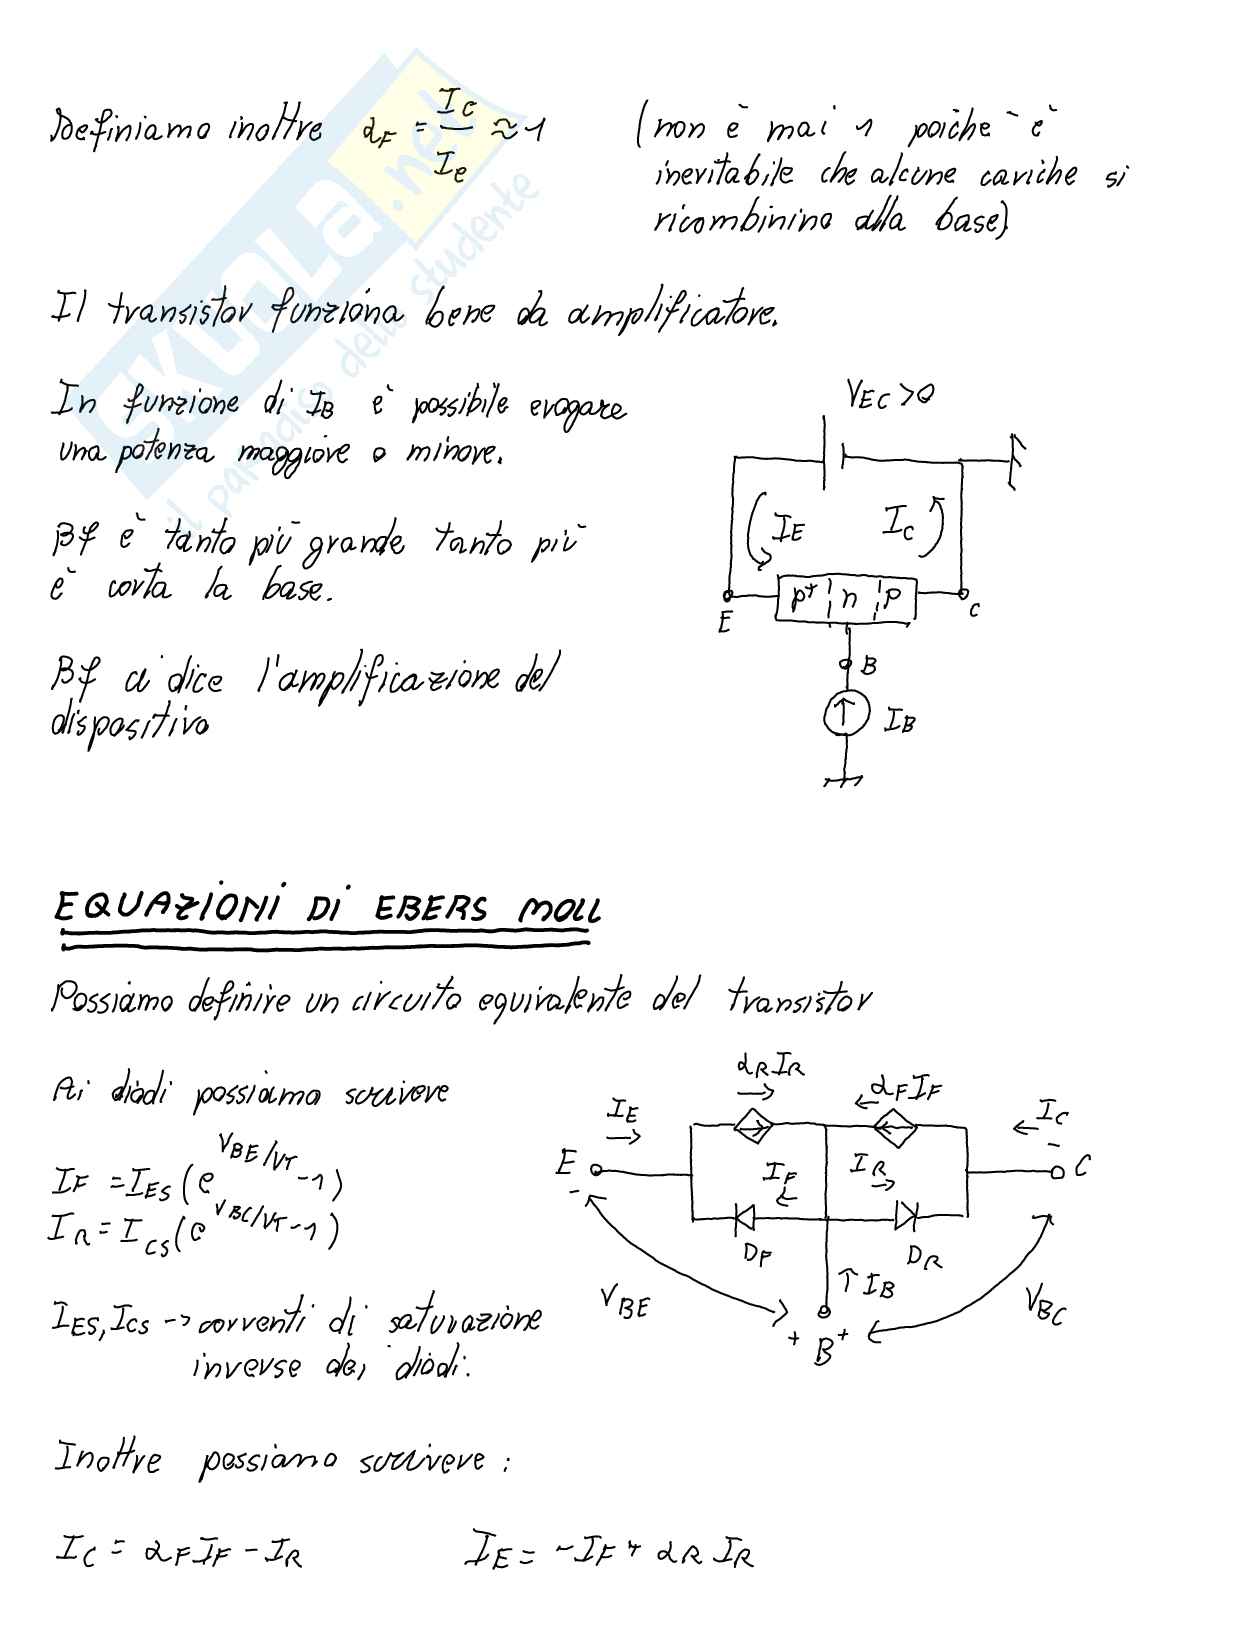 Definiamo inoltre αF = IC/Ie ≈ 1 (non è mai 1 poichè è
inevitabile che alcune cariche si
ricombinino alla base)
SKUOLA.net
il paradiso dello studente
Il transistor funziona bene da amplificatore.
In funzione di IB è possibile erogare
una potenza maggiore o minore.
βf è tanto più grande tanto più
è corta la base.
βf ci dice l'amplificazione del
dispositivo
VEC>0
IE IC
E p+ n p C
B
IB
EQUAZIONI DI EBERS MOLL
Possiamo definire un circuito equivalente del transistor
Ai diodi possiamo scrivere
IF = IES (e^VBE/VT - 1)
IR = ICS (e^VBC/VT - 1)
IES, ICS → correnti di saturazione
inverse dei diodi.
αRIR αFIF
IE IC
-
E IF IR C
-
DF DR
IB
VBE VBC
+ B +
Inoltre possiamo scrivere:
IC = αFIF - IR IE = -IF + αR IR